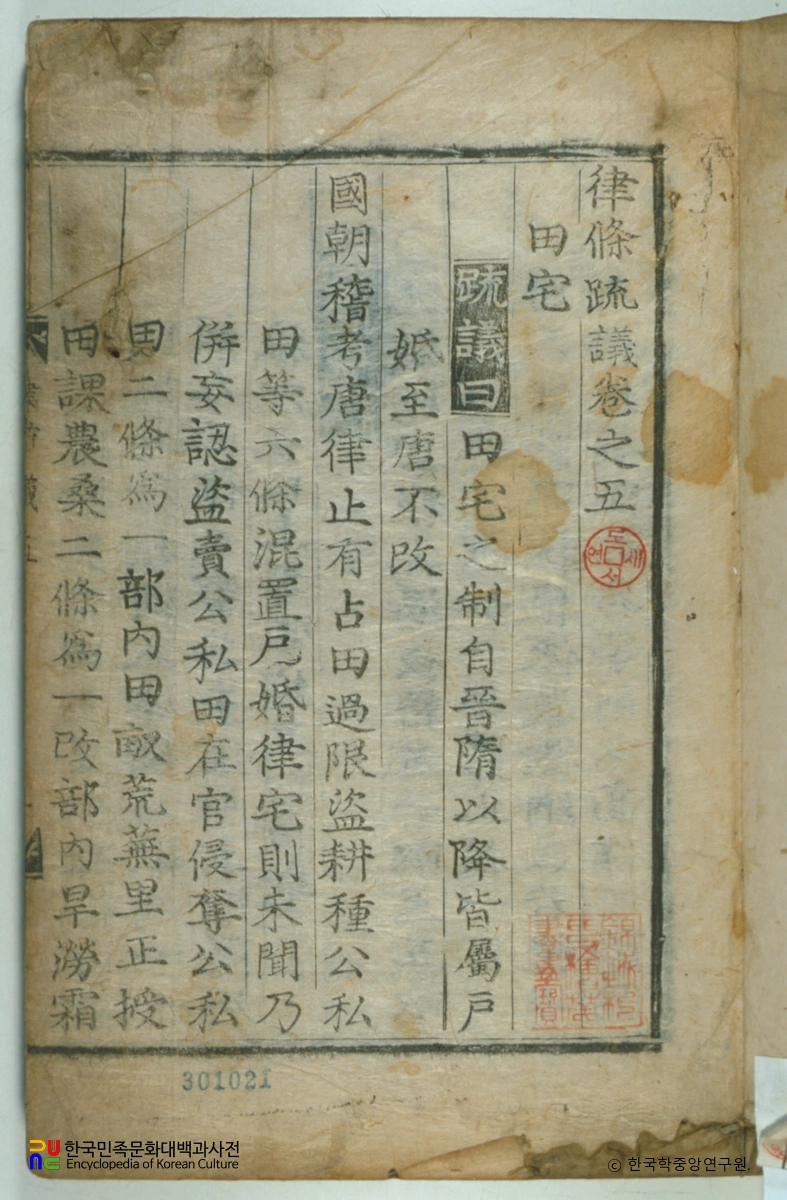 律條疏議卷之五
田宅
疏議曰田宅之制自晉隋以降皆屬戶
婚至唐不改
國朝稽考唐律止有占田過限盜耕種公私
田等六條混置戶婚律宅則未聞乃
併妄認盜賣公私田在官侵奪公私
田二條爲一部內田畝荒蕪里正授
田課農桑二條爲一改部內旱澇霜
도서
연세
301021
한국민족문화대백과사전
Encyclopedia of Korean Culture
© 한국학중앙연구원